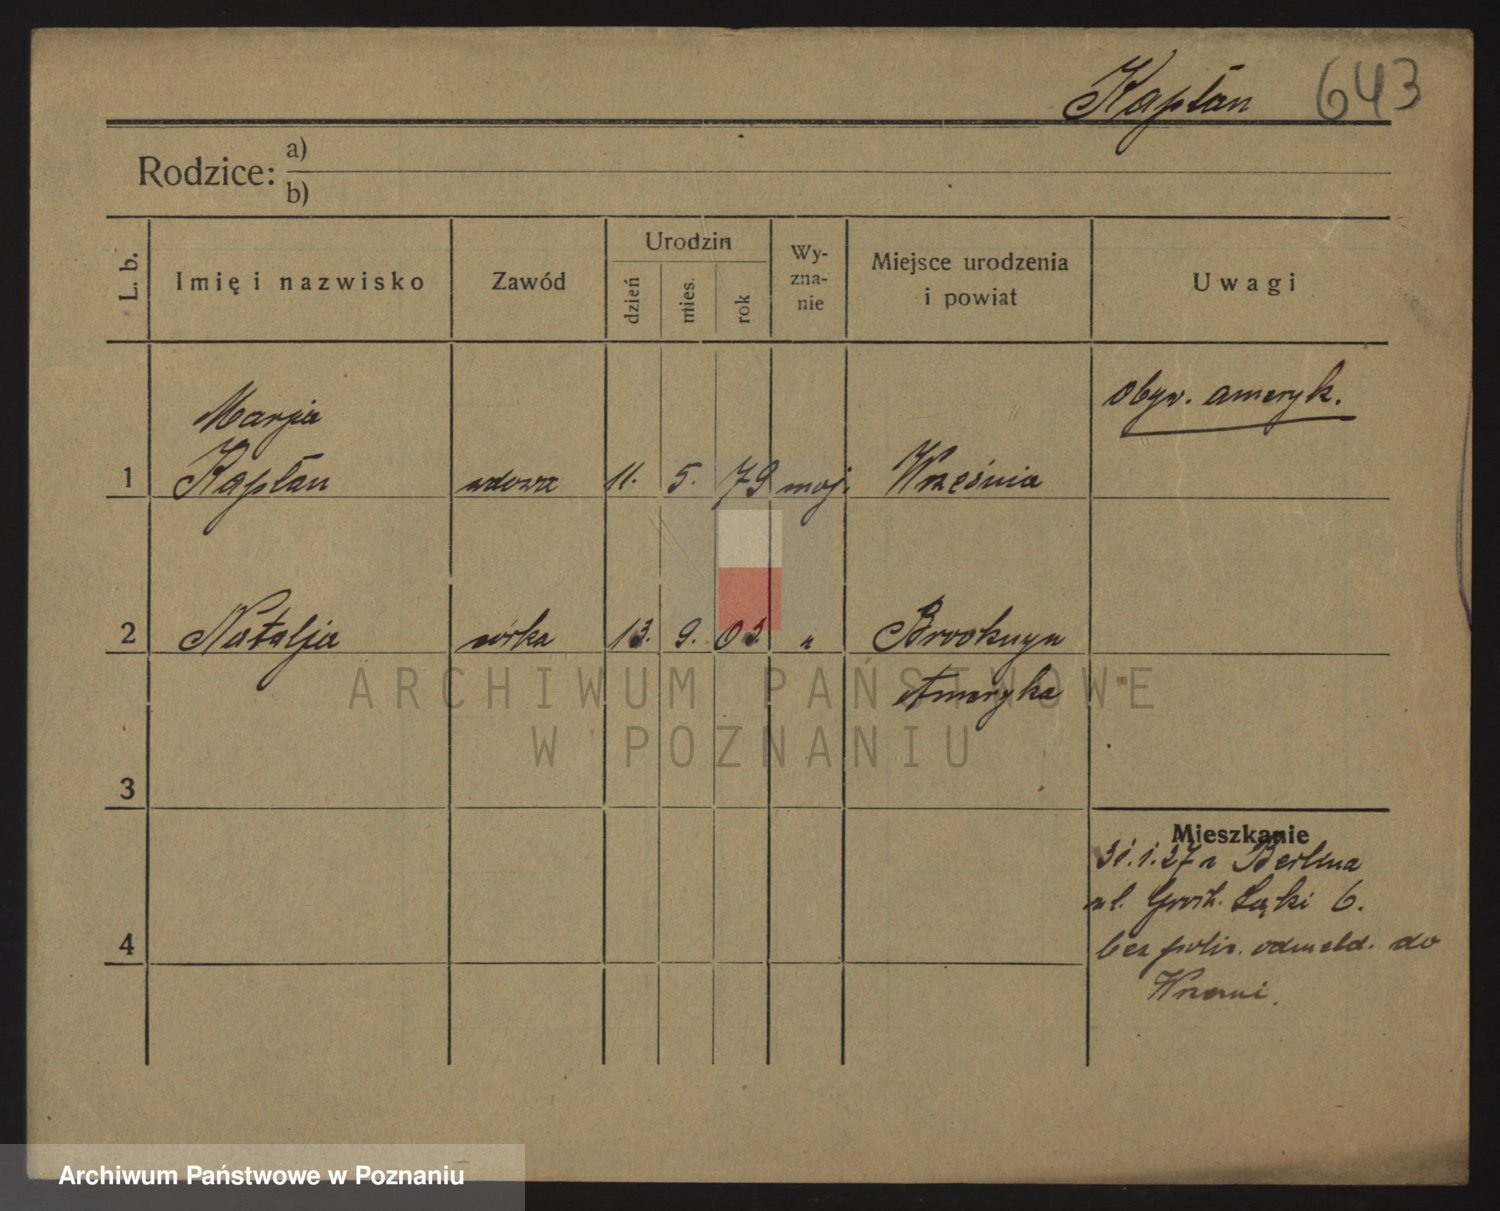 Kapłan 643
Rodzice: a)
b)
L. b.
Imię i nazwisko
Zawód
Urodzin
dzień
mies.
rok
Wy-
zna-
nie
Miejsce urodzenia
i powiat
Uwagi
Obyw. ameryk.
Marja
1 Kapłan wdowa 11. 5. 79 moj. Września
2 Natalja córka 13. 9. 03. " Brooknyn
Ameryka
ARCHIWUM PAŃSTWOWE
W POZNANIU
3
Mieszkanie
31.1.27 z Berlina
ul. Łąki 6.
4
bez polic. odmeld. do
Archiwum Państwowe w Poznaniu